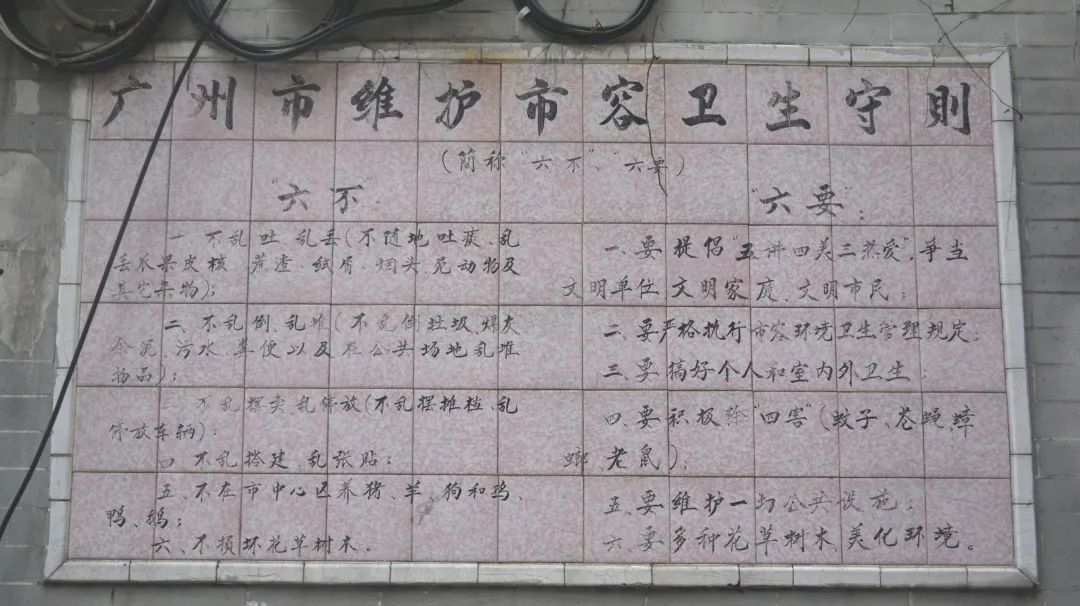 广州市维护市容卫生守則
(简称"六不"、"六要")
"六不"
一、不乱吐、乱丢(不随地吐痰、乱
丢瓜果皮核、蔗渣、纸屑、烟头、死动物及
其它杂物);
二、不乱倒、乱堆(不乱倒垃圾、煤灰
余泥、污水、粪便以及在公共场地乱堆
物品);
三、不乱摆卖、乱停放(不乱摆摊档、乱
停放车辆);
四、不乱搭建、乱张贴;
五、不在市中心区养猪、羊、狗和鸡、
鸭、鹅;
六、不損坏花草树木。
"六要":
一、要提倡"五讲四美三热爱",争当
文明单位、文明家庭、文明市民;
二、要严格执行市容环境卫生管理规定;
三、要搞好个人和室内外卫生;
四、要积极除"四害"(蚊子、苍蝇、蟑
螂、老鼠);
五、要维护一切公共设施;
六、要多种花草树木、美化环境。